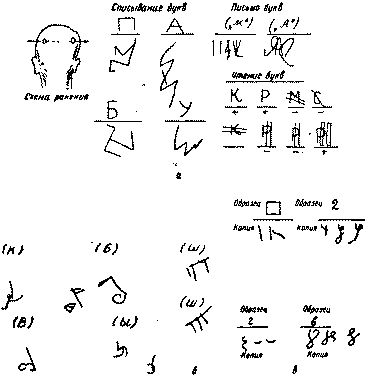 Списывание букв
П А
Письмо букв
(„М“) („А“)
Схема ранения
Чтение букв
К Р М С
К Р
+ – – +
Б У
г
Образец Образец 2
Копия Копия
(К) (Б) (Ш)
(Ш)
(В) (Ы)
Образец Образец
2 6
Копия Копия
б в